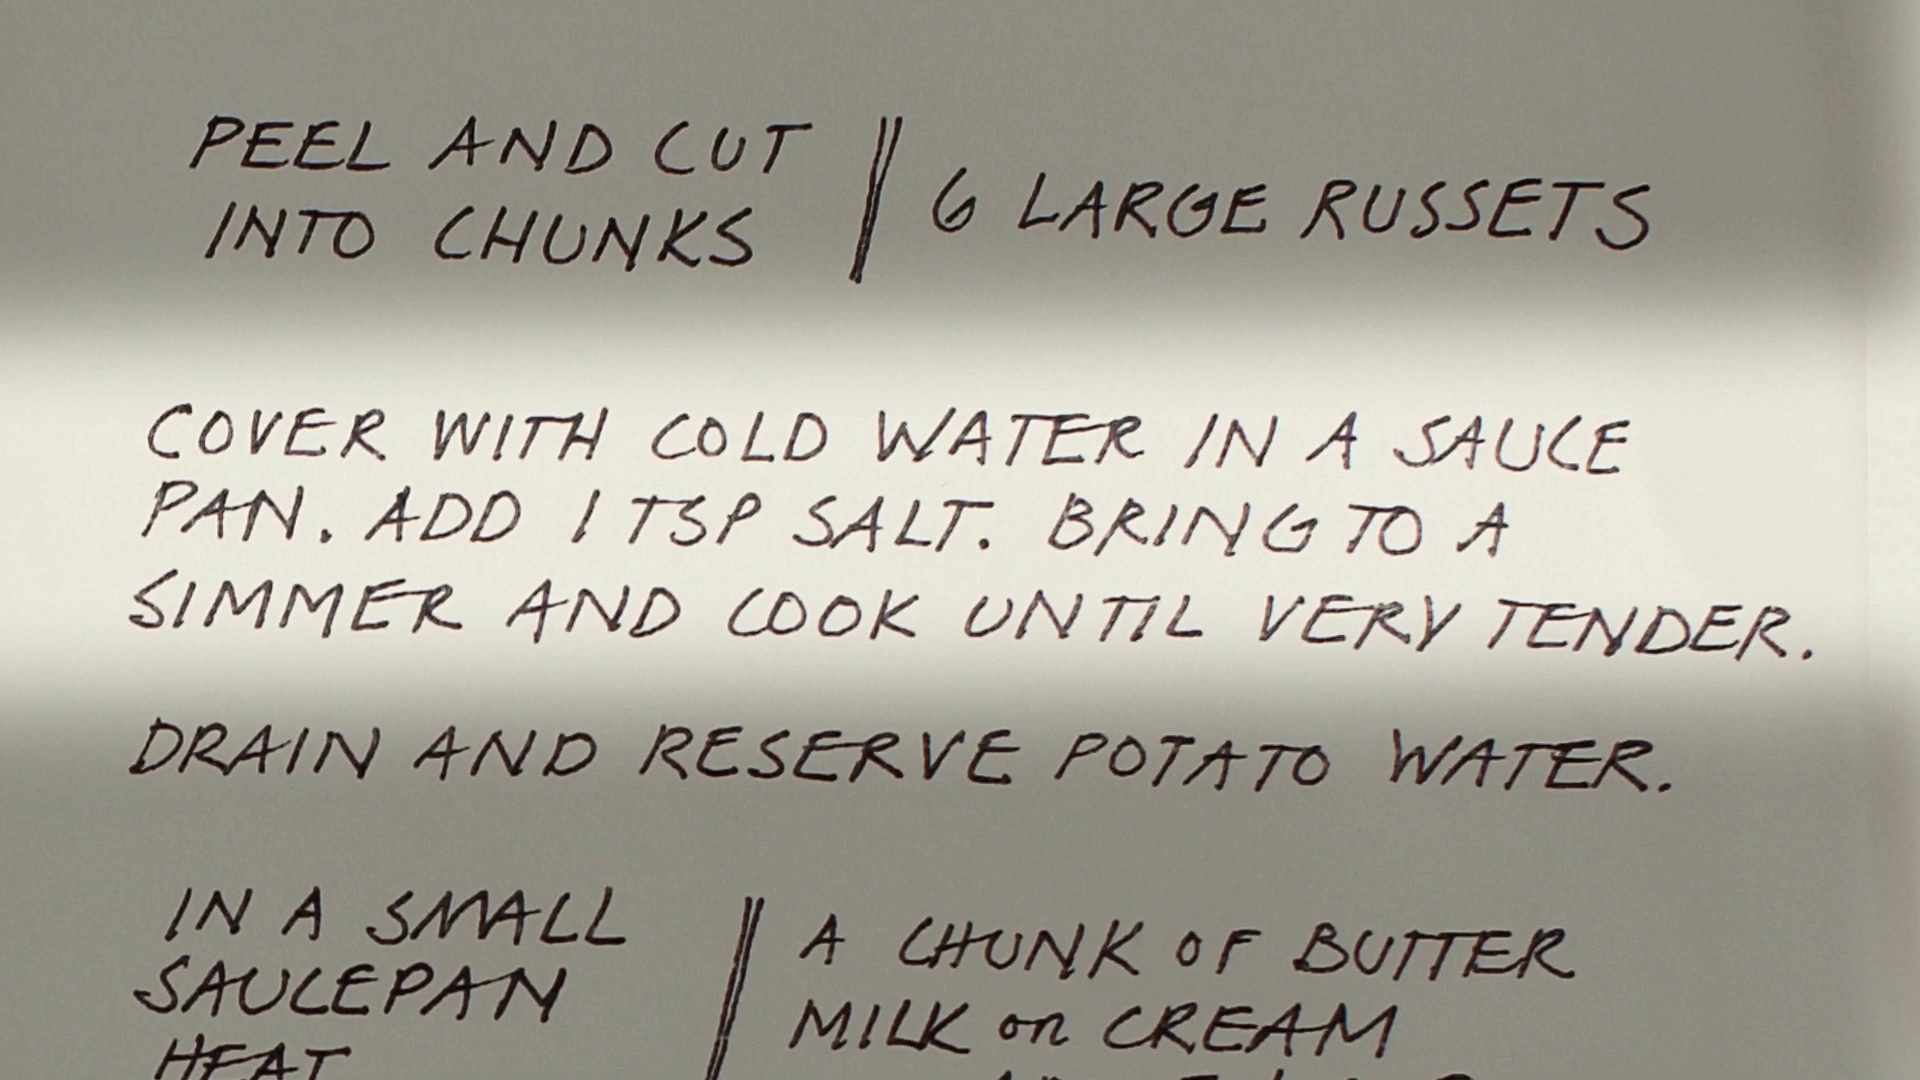 PEEL AND CUT
INTO CHUNKS
6 LARGE RUSSETS
COVER WITH COLD WATER IN A SAUCE
PAN. ADD 1 TSP SALT. BRING TO A
SIMMER AND COOK UNTIL VERY TENDER.
DRAIN AND RESERVE POTATO WATER.
IN A SMALL
SAUCEPAN
HEAT
A CHUNK OF BUTTER
MILK or CREAM